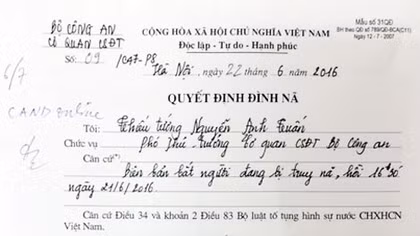 BỘ CÔNG AN
CƠ QUAN CSĐT
Số: 09 /C47-P8
CỘNG HÒA XÃ HỘI CHỦ NGHĨA VIỆT NAM
Độc lập - Tự do - Hạnh phúc
Mẫu số 31QĐ
BH theo QĐ số 789/QĐ-BCA(C11)
Ngày 12-7-2007
Hà Nội, ngày 22 tháng 6 năm 2016
6/7
CAND online
QUYẾT ĐỊNH ĐÌNH NÃ
Tôi: Thiếu tướng Nguyễn Anh Tuấn
Chức vụ Phó Thủ trưởng Cơ quan CSĐT Bộ Công an
Căn cứ Biên bản bắt người đang bị truy nã, hồi 16h30
ngày 21/6/2016.
Căn cứ Điều 34 và khoản 2 Điều 83 Bộ luật tố tụng hình sự nước CHXHCN
Việt Nam.